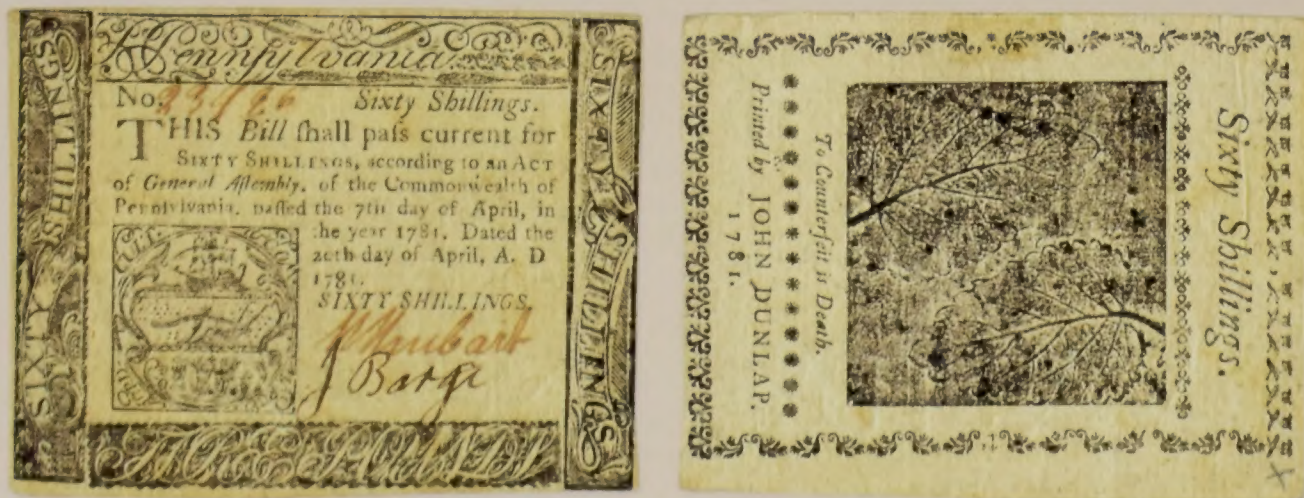 Pennſylvania
SIXTY SHILLINGS
SIXTY SHILLINGS
No.
Sixty Shillings.
THIS Bill ſhall paſs current for
SIXTY SHILLINGS, according to an ACT
of General Aſſembly, of the Commonwealth of
Pennſylvania, paſſed the 7th day of April, in
the year 1781. Dated the
20th day of April, A. D
1781.
SIXTY SHILLINGS.
J Barge
THREE POUNDS
Sixty Shillings.
To Counterfeit is Death.
Printed by JOHN DUNLAP.
1781.